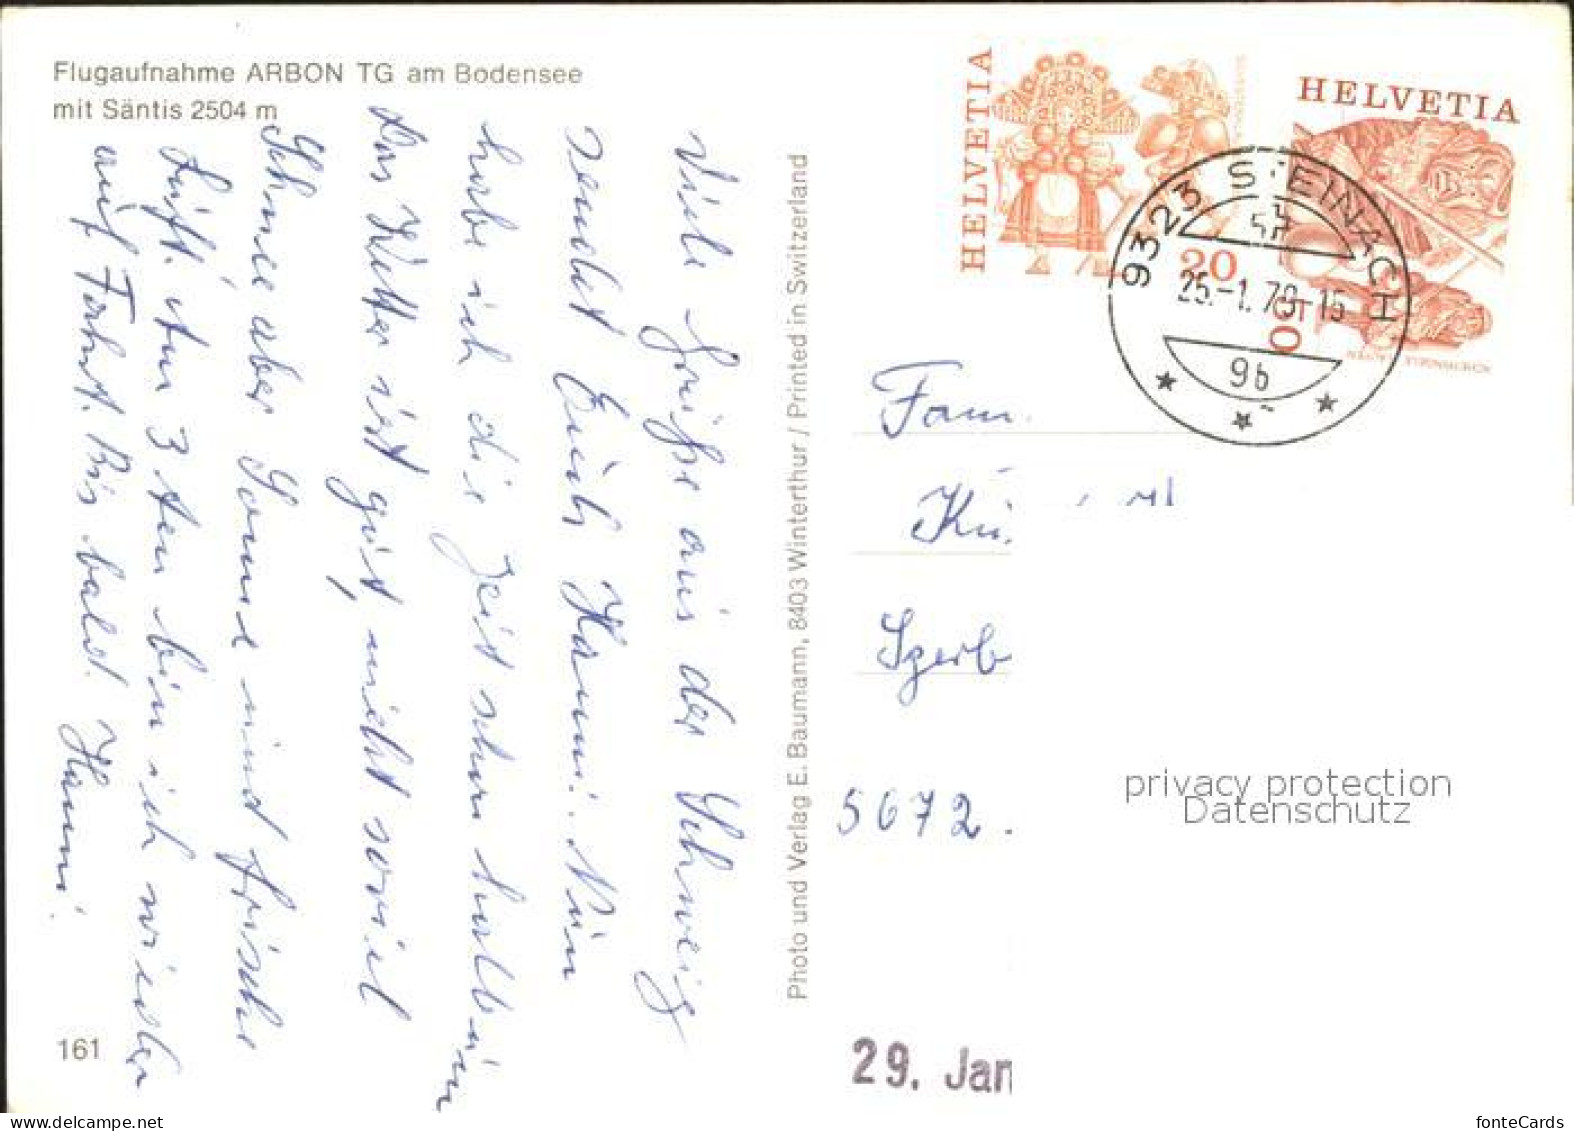 Flugaufnahme ARBON TG am Bodensee
mit Säntis 2504 m
Viele Grüße aus der Schweiz
sendet Euch Hanni. Nun
habe ich die Zeit schon halb um
Das Wetter ist gut, nicht soviel
Schnee aber Sonne und frische
Luft. Am 3 ten bin ich wieder
auf Fahrt. Bis bald. Hanni.
161
Photo und Verlag E. Baumann, 8403 Winterthur / Printed in Switzerland
HELVETIA
20
HELVETIA
20
9323 STEINACH
25.-1.79.-15
9b
Fam.
Kü
Szerb
5672
29. Jan
privacy protection
Datenschutz
fonteCards